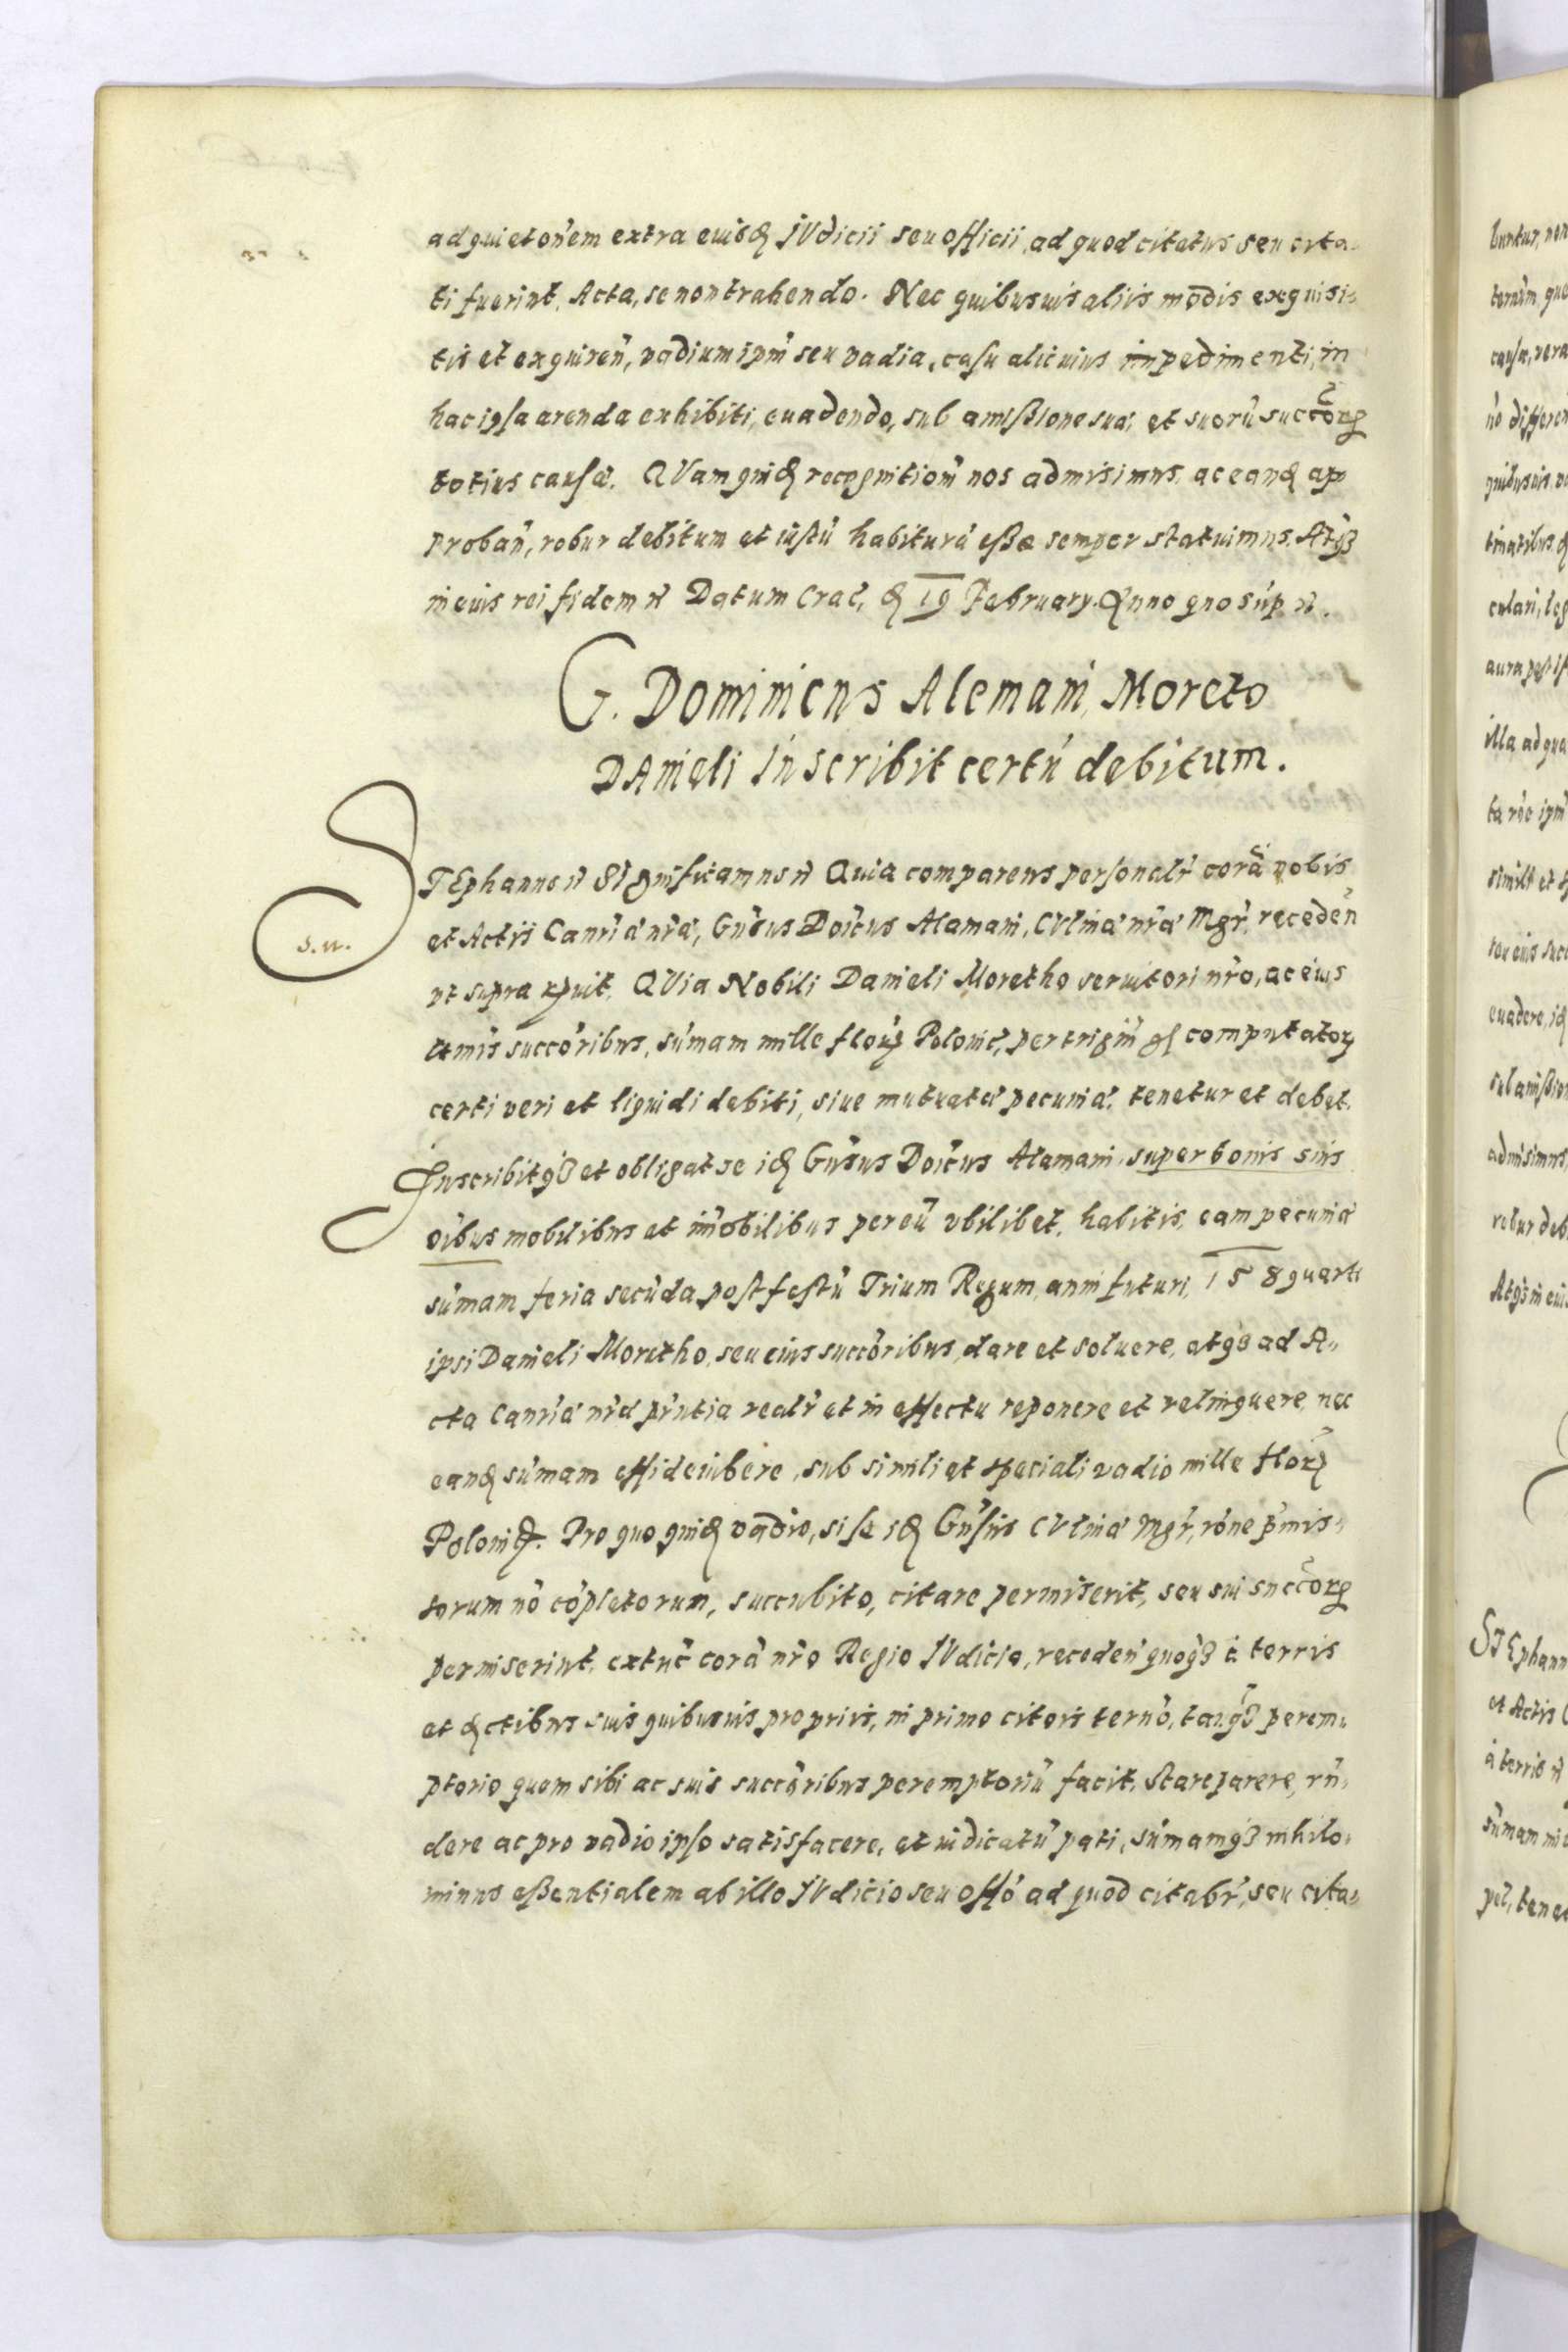 ad quietoñem extra eiusd Judicii seu officii, ad quod citatus seu cita-
ti fuerint, Acta, se non trahendo. Nec quibusuis aliis modis exquisi-
tis et exquireñ, vadium ipm̃ seu vadia, casu alicuius impedimenti, in
hac ipsa arenda exhibiti, euadendo, sub amißione sua, et suorũ succõrꝝ
totius causæ. QVam quid recognitioñ nos admisimus, ac eand ap
probañ, robur debitum et iustũ habiturã eße semper statuimus. Atqꝫ
in euis rei fidem ñ Datum Crac̃, d 19 February. Anno quo sup̃ ñ.
G. Dominicus Alemani, Moreto
DAnieli Inscribit certũ debitum.
STEphannus ñ Significamus ñ Quia comparens personalr̃ corã nobis
s.n.
et Actis Canr̃iæ nr̃æ, Gñsus Doĩcus Alamani, CVlinæ nr̃æ Mgr̃, recedeñ
vt supra ꝛp̃uit, QVia Nobili Danieli Moretho seruitori nr̃o, ac eius
ltmis succõribus, sũmam mille florꝝ Polonic̃, per trigiñ gs computatorꝝ
certi veri et liquidi debiti, siue mutuatæ pecuniæ, tenetur et debet.
Inscribitqꝫ et obligat se id Gñsus Doĩcus Alamani, super bonis suis
oĩbus mobilibus et im̃obilibus per eũ vbilibet, habitis, eam pecuniæ
sũmam feria secũda post festũ Trium Regum, anni futuri, 158quarti
ipsi Danieli Moretho, seu eius succõribus, dare et soluere, atqꝫ ad A-
cta Canr̃iæ nr̃æ pñtia realr̃ et in effectu reponere et relinquere, nec
eand sũmam effideiubere, sub simili et speciali vadio mille florꝝ
Polonic. Pro quo quid vadio, si se id Gñsus CVlinæ Mgr̃, rõne p̃mis-
sorum nõ cõpletorum, succubito, citare permiserit, seu sui succõrꝝ
permiserint, extunc̃ corã nr̃o Regio JVdicio, recedeñ quoqꝫ à terris
et dctibus suis quibusuis propriis, in primo citõis termõ, tanqꝫ perem-
ptorio quem sibi ac suis succõribus peremptoriũ facit, Stare parere, rñ-
dere ac pro vadio ipso satisfacere, et iudicatũ pati, sũmamqꝫ nihilo-
minus eßentialem ab illo JVdicio seu offõ ad quod citabr̃, seu cita-